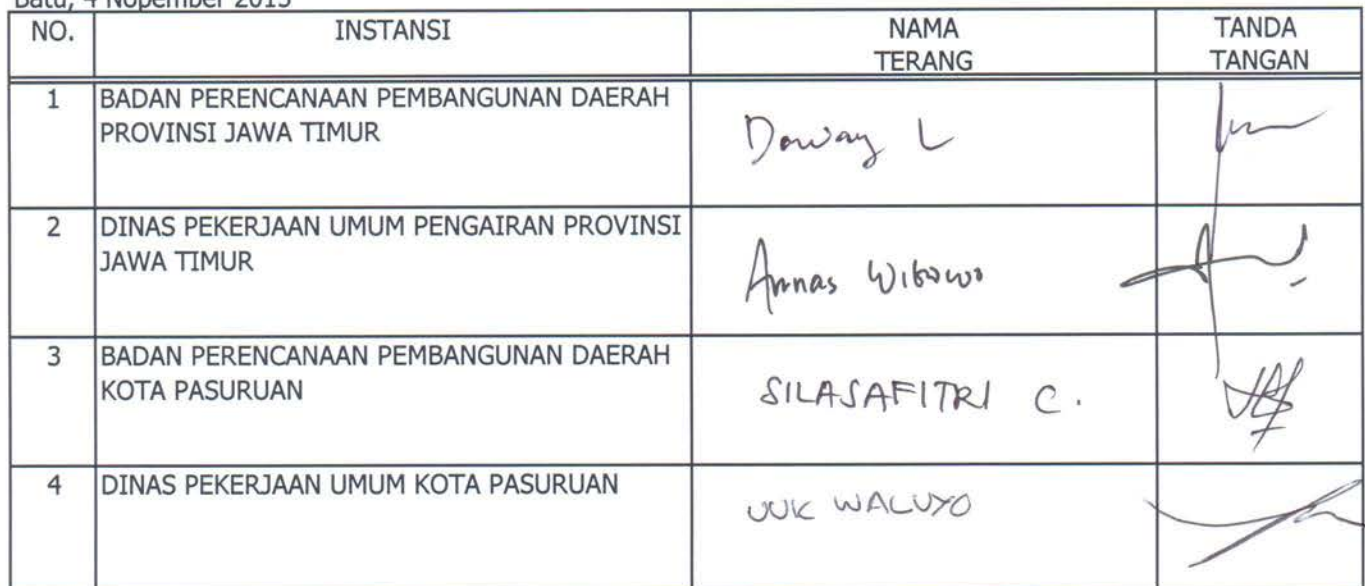 Batu, 4 Nopember 2015
NO. INSTANSI NAMA TERANG TANDA TANGAN
1 BADAN PERENCANAAN PEMBANGUNAN DAERAH
PROVINSI JAWA TIMUR
L
2 DINAS PEKERJAAN UMUM PENGAIRAN PROVINSI
JAWA TIMUR
Annas Wibowo
3 BADAN PERENCANAAN PEMBANGUNAN DAERAH
KOTA PASURUAN
SILASAFITRI C.
4 DINAS PEKERJAAN UMUM KOTA PASURUAN
UUK WALUYO